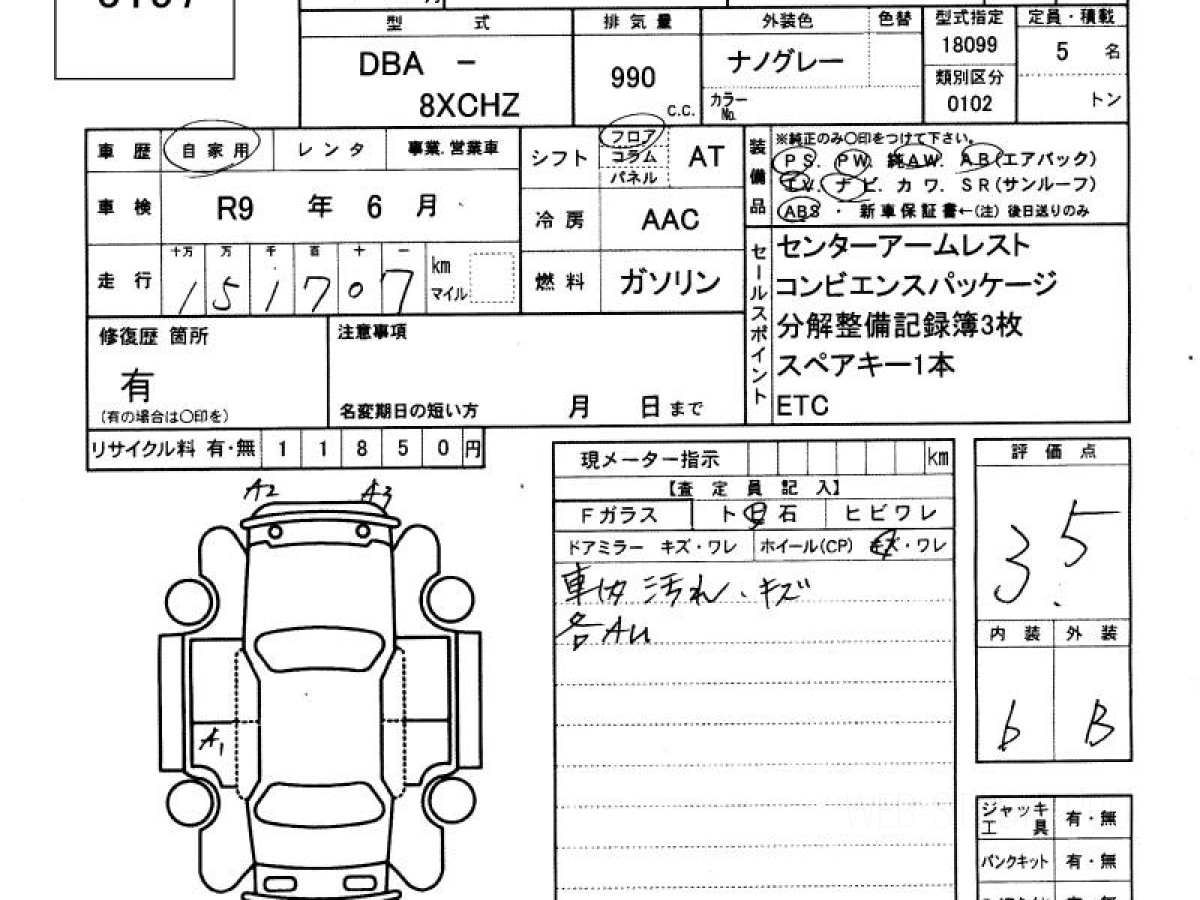 型 式 排 気 量 外装色 色替 型式指定 定員・積載
DBA － 990 ナノグレー 18099 5 名
8XCHZ C.C. カラーNo. 類別区分 0102 トン
車 歴 自 家 用 レ ン タ 事業.営業車
車 検 R9 年 6 月
走 行 十万 万 千 百 十 一
1 5 1 7 0 7 km マイル
シフト フロア コラム パネル AT
冷 房 AAC
燃 料 ガソリン
装備品
※純正のみ〇印をつけて下さい。
PS. PW. 純AW. AB(エアバック)
TV. ナビ. カワ. SR(サンルーフ)
ABS ・ 新車保証書←(注) 後日送りのみ
セールスポイント
センターアームレスト
コンビエンスパッケージ
分解整備記録簿3枚
スペアキー1本
ETC
修復歴 箇所
有
(有の場合は〇印を)
注意事項
名変期日の短い方 月 日 まで
リサイクル料 有・無 1 1 8 5 0 円
現メーター指示 km
【査 定 員 記 入】
Fガラス ト ビ 石 ヒビワレ
ドアミラー キズ・ワレ ホイール(CP) キズ・ワレ
車内 汚れ、キズ
各AU
評 価 点
3.5
内 装 外 装
b B
A2 A3
A1
ジャッキ工具 有・無
パンクキット 有・無